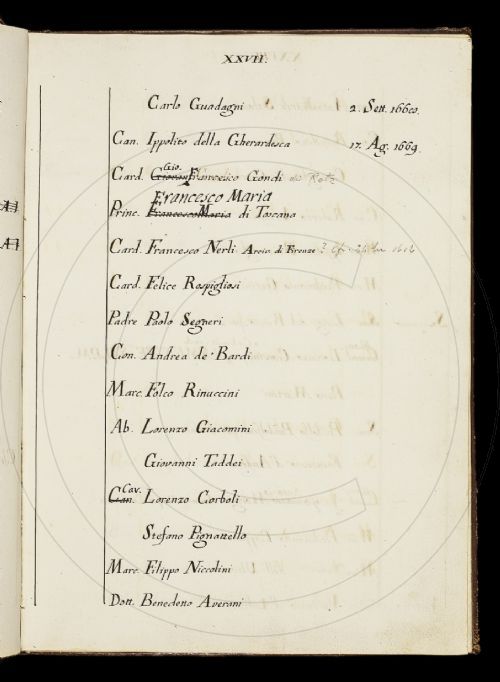 XXVII.
Carlo Guadagni 2. Sett. 1660.
Can. Ippolito della Gherardesca 17. Ag. 1669.
Gio.
Card. Francesco Gondi de Retz
Francesco Maria
Princ. Francesco Maria di Toscana
Card. Francesco Nerli Arciv. di Firenze
Card. Felice Rospigliosi
Padre Paolo Segneri
Con. Andrea de' Bardi
Marc. Folco Rinuccini
Ab. Lorenzo Giacomini
Giovanni Taddei
Cav.
Can. Lorenzo Corboli
Stefano Pignattello
Marc. Filippo Niccolini
Dott. Benedetto Averani